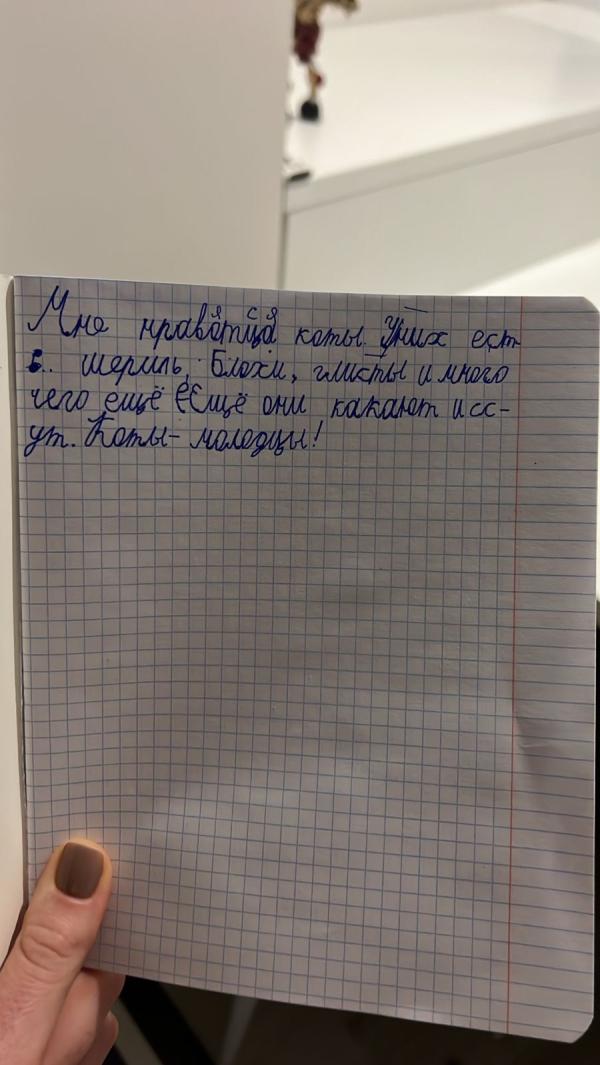 Мне нравятся коты. У них ест
ь.. шерсть, блохи, глисты и много
чего ещё Ещё они какают и сс-
ут. Коты - молодцы!